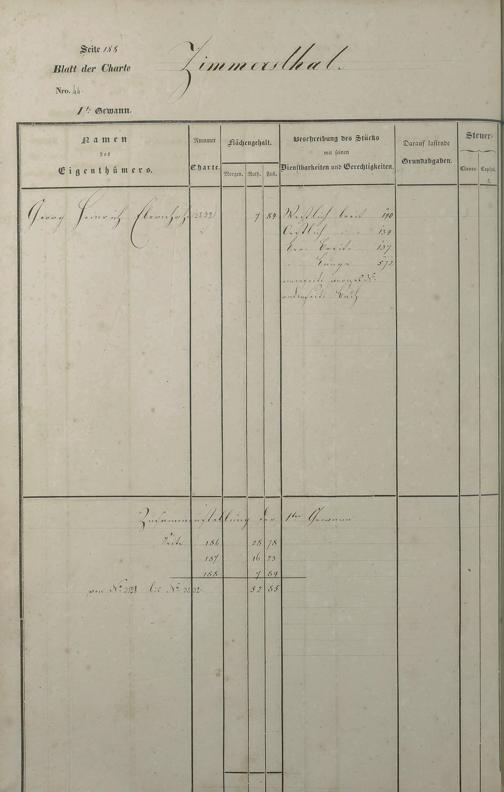 Seite 188
Zimmersthal.
Blatt der Charte
Nro. 44.
1te Gewann.
Namen
des
Eigenthümers.
Nummer
der
Charte.
Flächengehalt.
Morgen. Ruth. Fuß.
Beschreibung des Stücks
mit seinen
Dienstbarkeiten und Gerechtigkeiten.
Darauf lastende
Grundabgaben.
Steuer-
Classe. Capital.
Georg Heinrich 7 84 Westlich breit 190
Oestlich 134
Breite 137
Länge 572
Zusammenstellung der 1ten Gewann
Seite 186 28 78
187 16 23
188 7 84
von No. bis No. 52 85